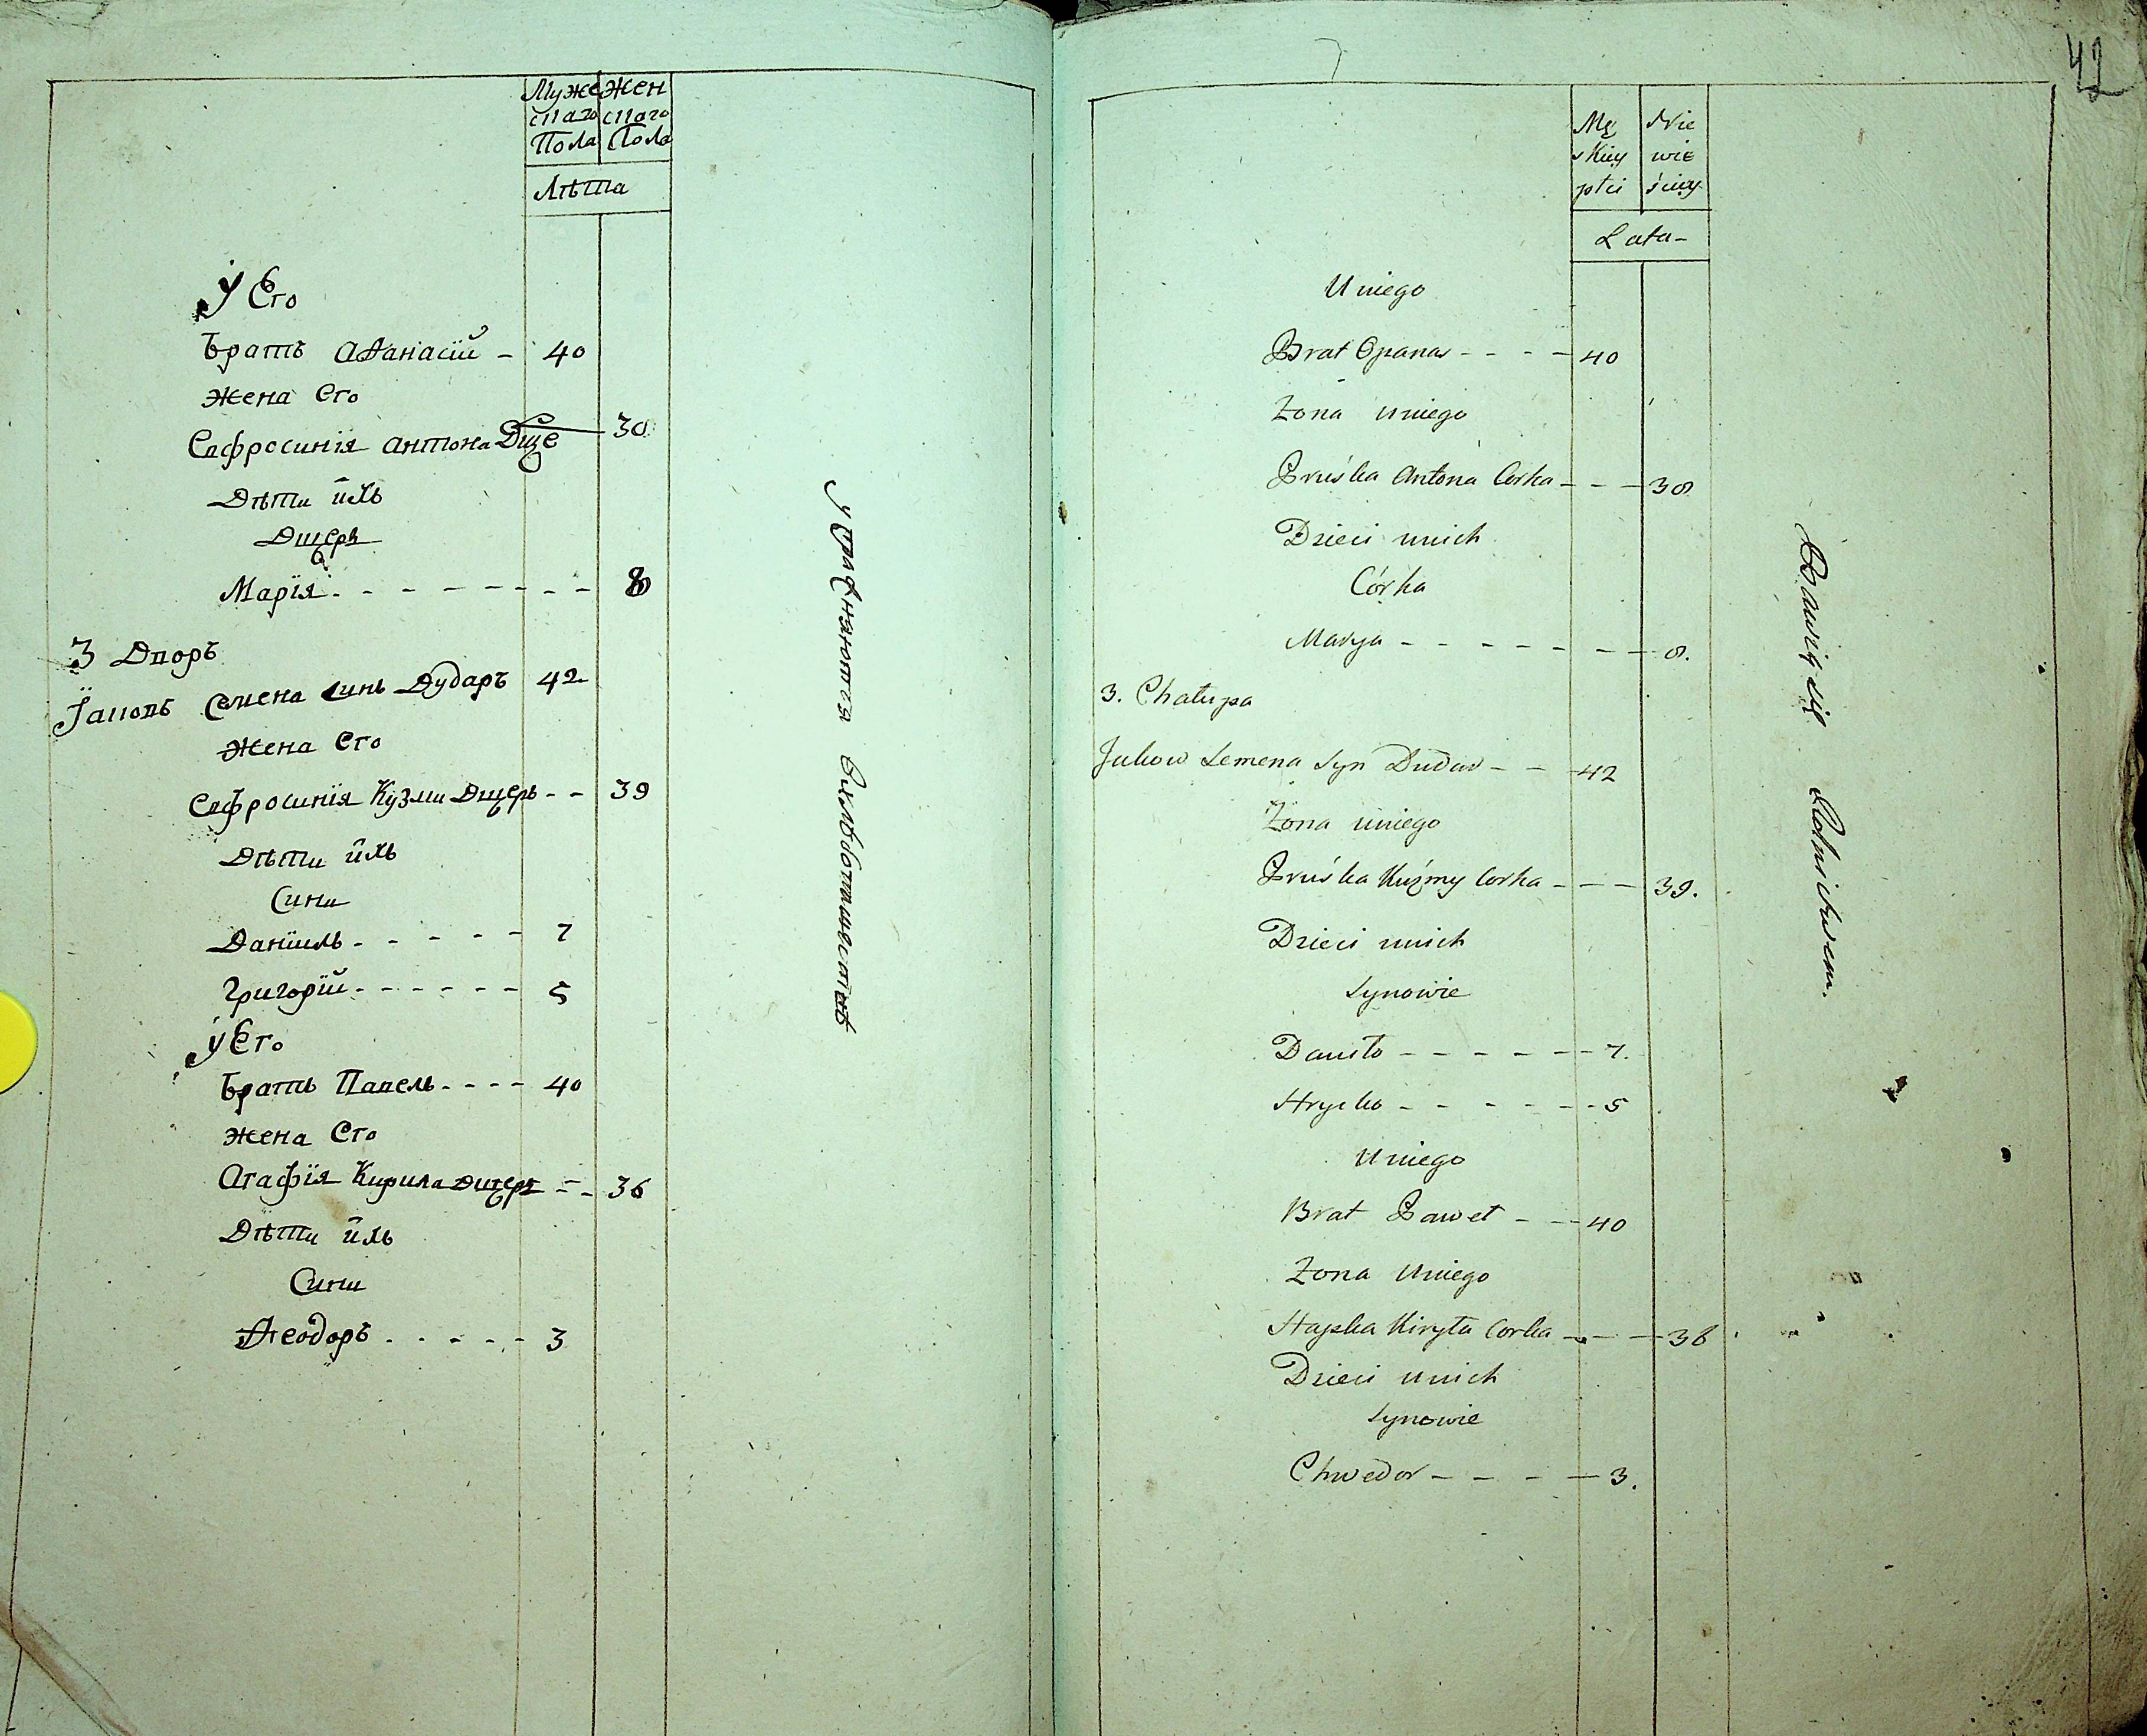 Муже Жен
скаго скаго
Пола Пола
Лѣта
У Его
Братъ Аѳанасій - 40
Жена Его
Евфросинія Антона Дще 30
Дѣти ихъ
Дщерь
Марія - - - - - - - - 8
3 Дворъ
Іаковъ Семена синъ Дударъ 42
Жена Его
Евфросинія Кузми Дщерь - - 39
Дѣти ихъ
Сини
Даніилъ - - - - - 7
Григорій - - - - - - 5
У Его
Братъ Павелъ - - - - 40
Жена Его
Агафія Кирила дщерь - - - 36
Дѣти ихъ
Сини
Ѳеодоръ - - - - - 3
упражняются хлѣбопашествѣ
42
Mę Nie
skiey wie
płci ściey
Lata -
U niego
Brat Opanas - - - - 40
Zona uniego
Pruśka Antona Corka - - - 30
Dzieci unich
Córka
Marya - - - - - - - 8.
3. Chałupa
Jakow Semena Syn Dudar - - - 42
Żona uniego
Pruśka Kuźmy Corka - - - 39.
Dzieci unich
Synowie
Daniło - - - - - - 7.
Hryćko - - - - - - 5
Uniego
Brat Paweł - - - 40
Zona Uniego
Hapka Kiryła Corka - - - 36
Dzieci Unich
Synowie
Chwedor - - - - - 3.
Bawią się Rolnictwem.